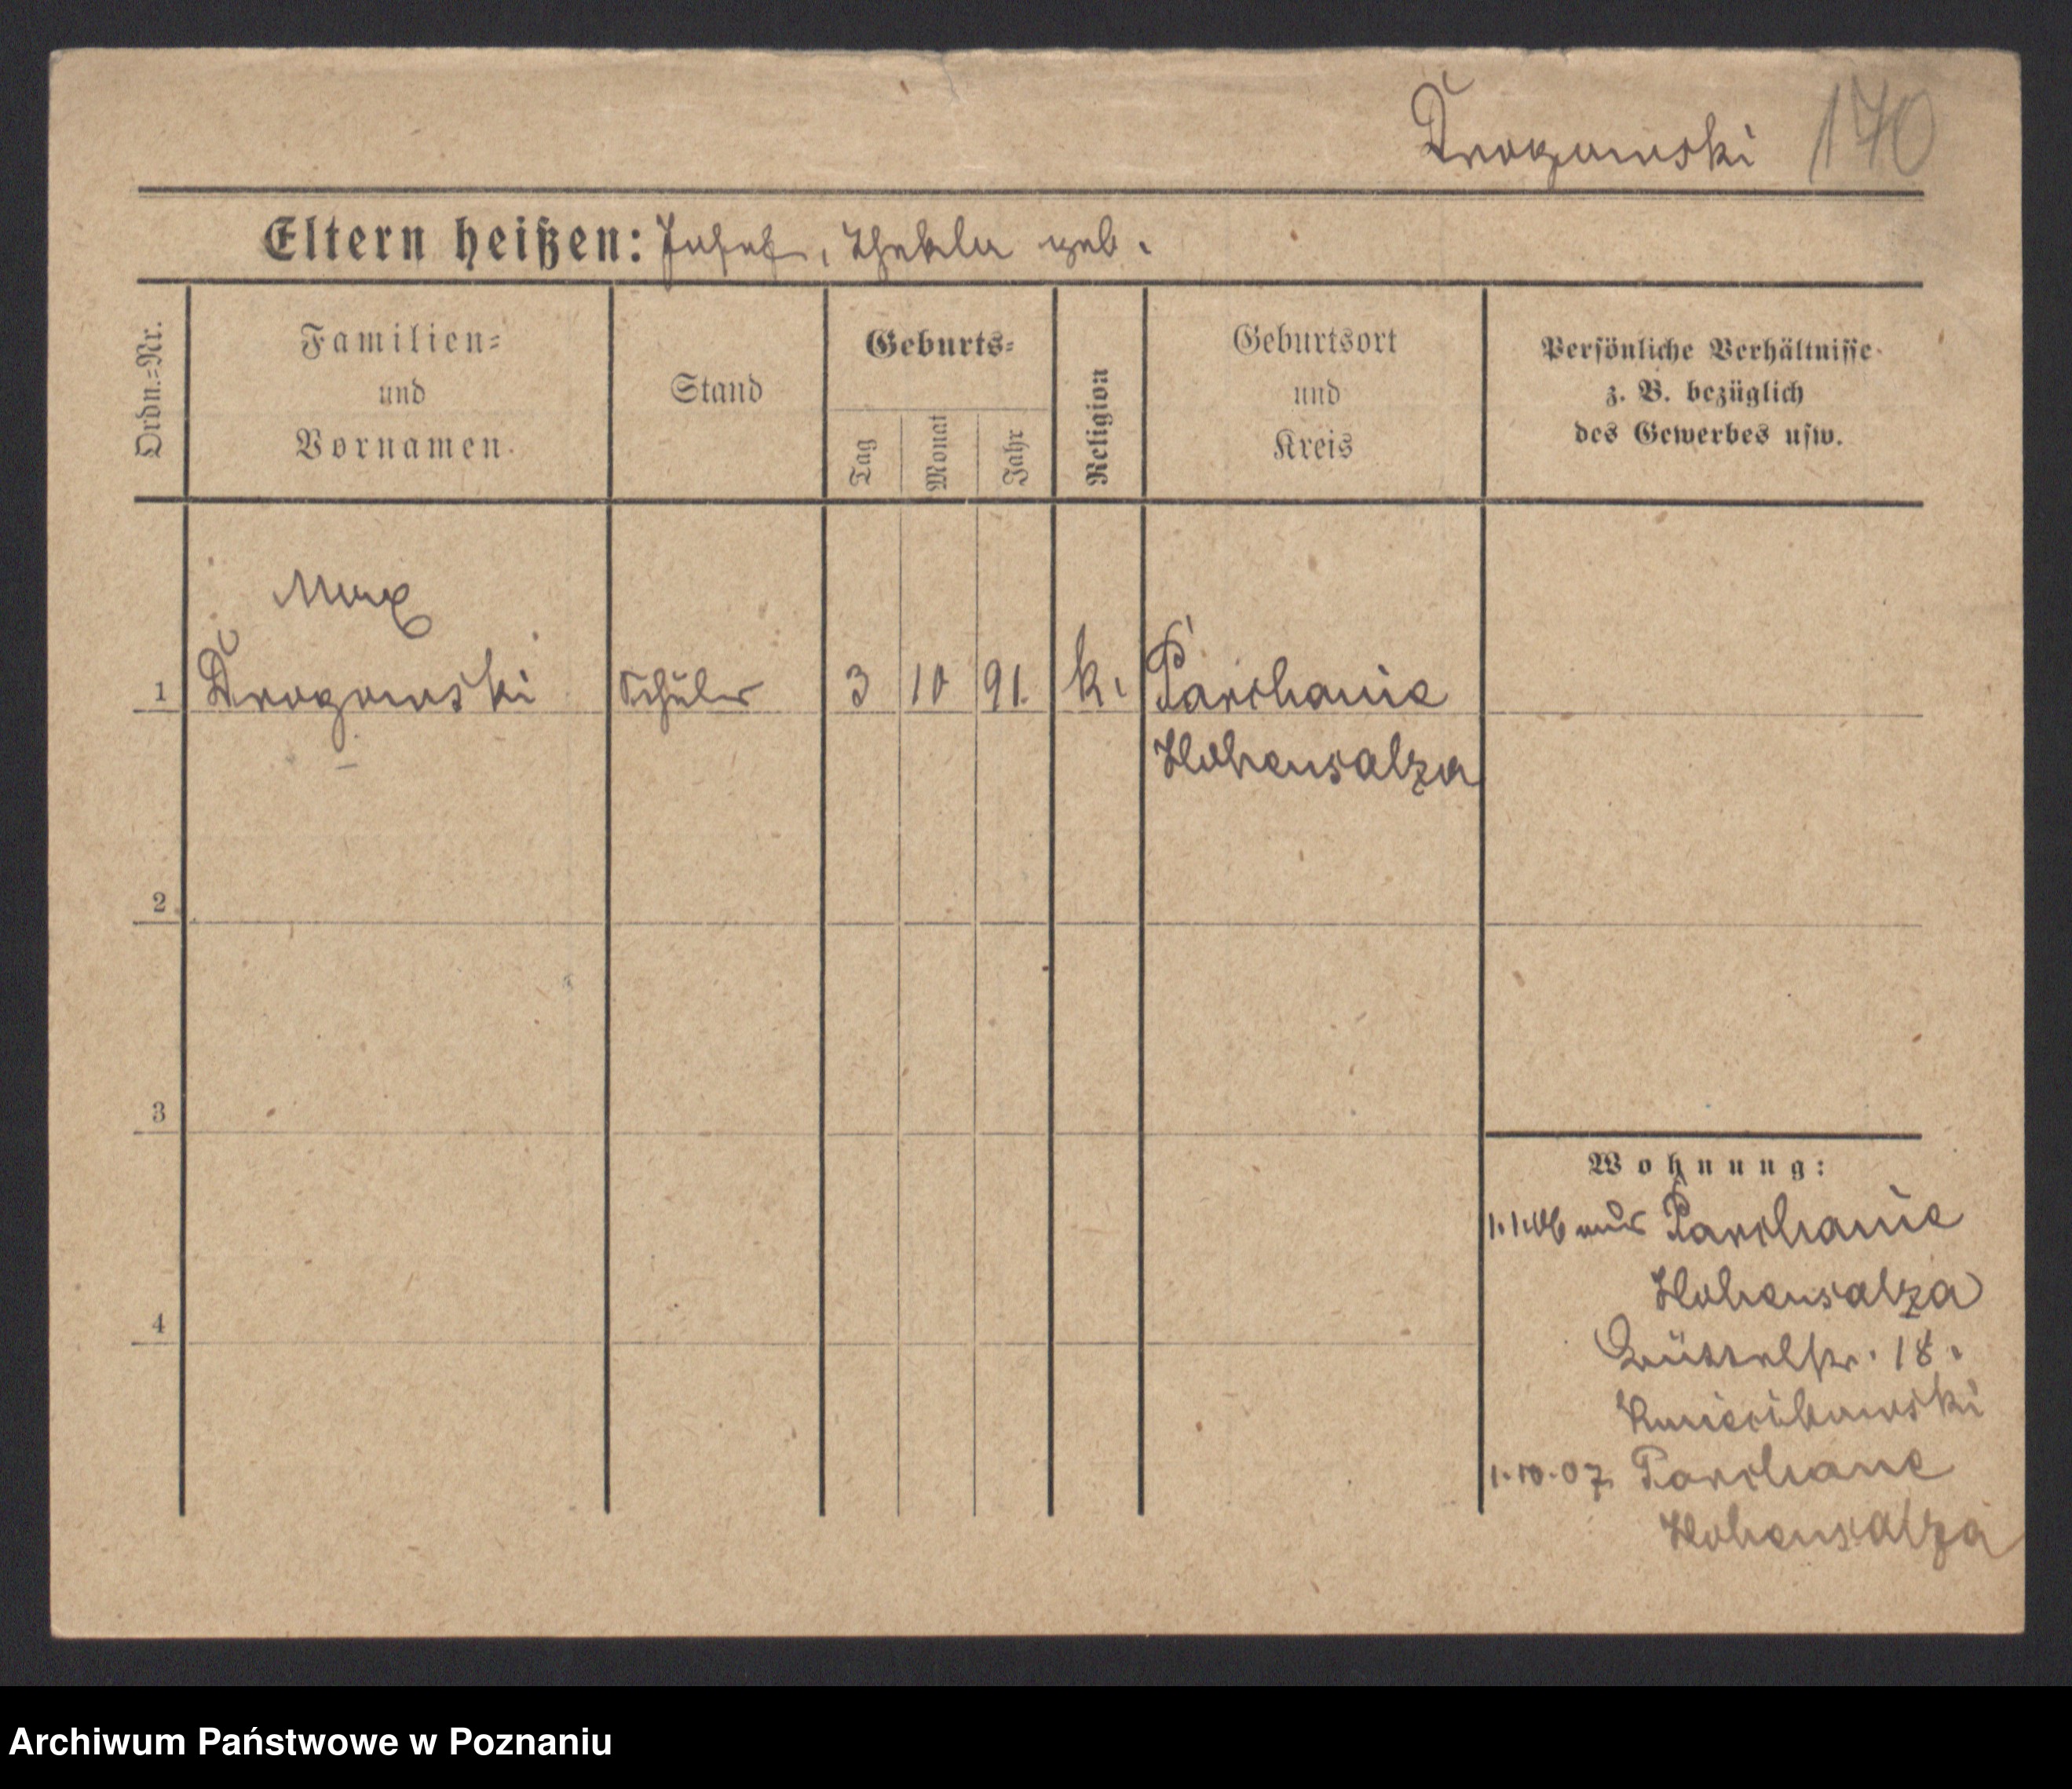 Drogowski 170
Eltern heißen: Josef, Thekla geb.
Ordn.=Nr.
Familien=
und
Vornamen.
Stand
Geburts=
Tag
Monat
Jahr
Religion
Geburtsort
und
Kreis
Persönliche Verhältnisse
z. B. bezüglich
des Gewerbes usw.
Max
1 Drogowski Schüler 3 10 91. k. Parchanie
Hohensalza
2
3
4
Wohnung:
1.1.06 aus Parchanie
Hohensalza
18.
1.10.07 Parchanie
Hohensalza
Archiwum Państwowe w Poznaniu